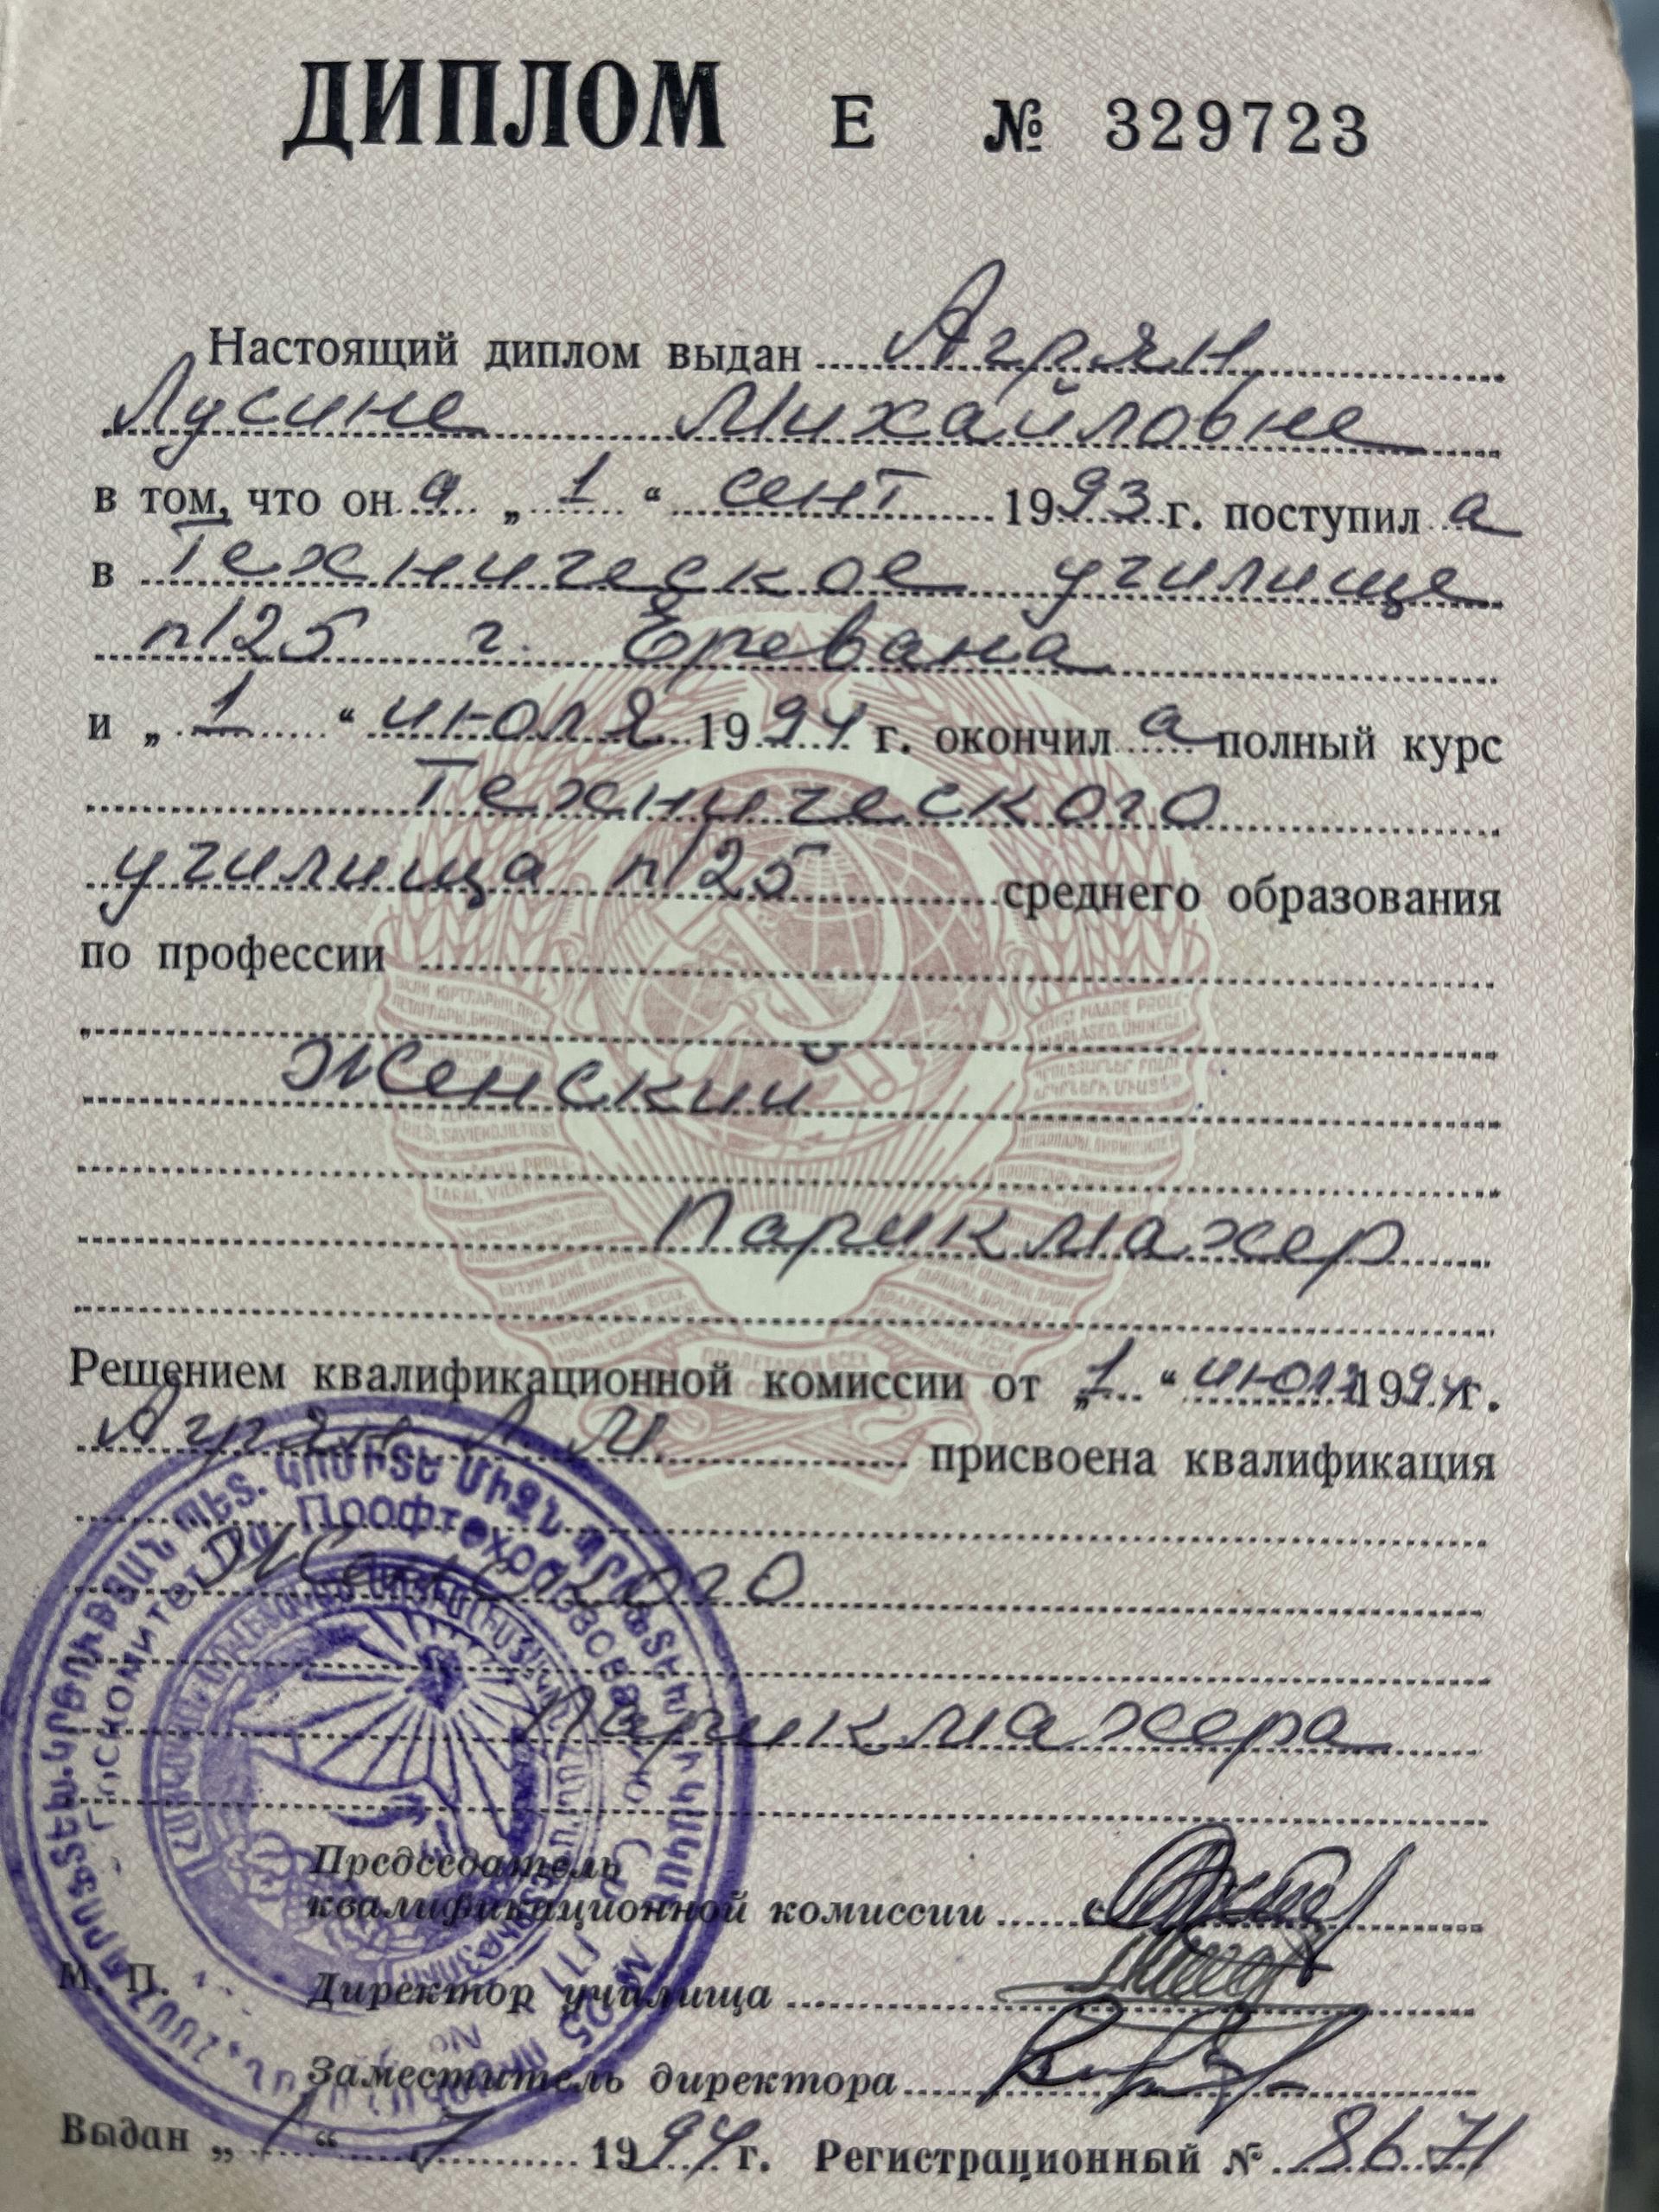 ДИПЛОМ Е № 329723
Настоящий диплом выдан Агрян
Лусине Михайловне
в том, что он а „ 1 “ сент 1993 г. поступил а
в Техническое училище
n/25 г. Еревана
и „ 1 “ июля 1994 г. окончил а полный курс
Технического
училища n/25 среднего образования
по профессии
Женский
Парикмахер
Решением квалификационной комиссии от „1“ июля 1994 г.
Агрян Л. М. присвоена квалификация
Женского
Парикмахера
Председатель
квалификационной комиссии
Директор училища
М. П.
Заместитель директора
Выдан „ 1 “ 7 1994 г. Регистрационный № 8671